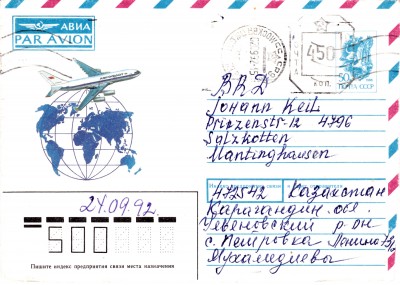 АВИА
PAR AVION
450
коп.
50
ПОЧТА СССР
BRD
Johann Keil
Prinzenstr-12 4796
Salzkotten
Mantinghausen
472542 Казахстан
Карагандин. обл.
р-он
с. Петровка
Мухамедиевы
24.09.92
500
Пишите индекс предприятия связи места назначения